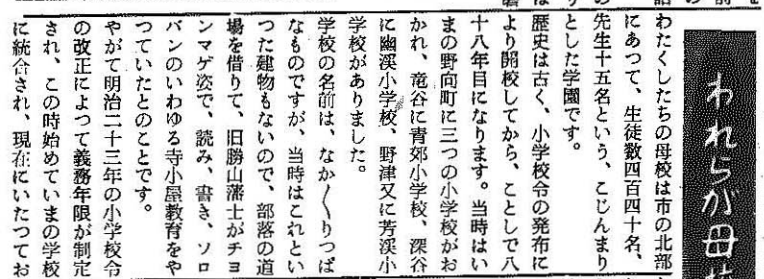 われらが母
わたくしたちの母校は市の北部
にあつて、生徒数四百四十名、
先生十五名という、こじんまり
とした学園です。
歴史は古く、小学校令の発布に
より開校してから、ことしで八
十八年目になります。当時はい
まの野向町に三つの小学校がお
かれ、竜谷に青郊小学校、深谷
に幽渓小学校、野津又に芳渓小
学校がありました。
学校の名前は、なか〱りつぱ
なものですが、当時はこれとい
つた建物もないので、部落の道
場を借りて、旧勝山藩士がチヨ
ンマゲ姿で、読み、書き、ソロ
バンのいわゆる寺小屋教育をや
つていたとのことです。
やがて明治二十三年の小学校令
の改正によつて義務年限が制定
され、この時始めていまの学校
に統合され、現在にいたつてお